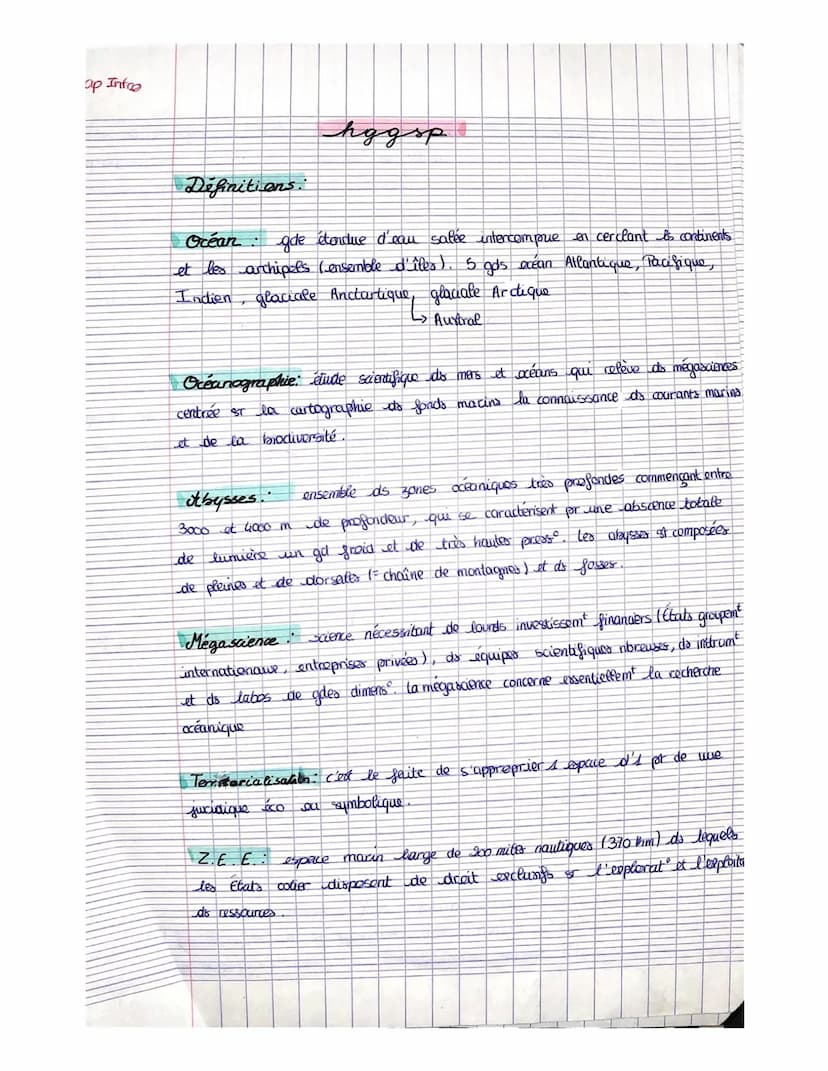 ap Intro
hggsp
Définitions :
Océan : gde étendue d'eau salée intercompue en cerclant les continents
et les archipels (ensemble d'îles). 5 gds océan Atlantique, Pacifique,
Indien, glaciale Anctartique, glaciale Arctique
↳ Austral
Océanographie : étude scientifique ds mers et océans qui relève ds mégasciences
centrée sr la cartographie ds fonds marins la connaissance ds courants marins
et de la biodiversité.
Abysses : ensemble ds zones océaniques très profondes commençant entre
3000 et 4000 m de profondeur, qui se caractérisent pr une abscence totale
de lumière un gd froid et de très hautes press°. Les abysses st composées
de pleines et de dorsales (= chaîne de montagnes) et ds fosses.
Mégascience : science nécessitant de lourds investissemt financiers (États groupent
internationaux, entreprises privées), ds équipes scientifiques nbreuses, ds instrumt
et ds labos de gdes dimens°. La mégascience concerne essentiellemt la recherche
océanique
Territorialisation : c'est le faite de s'appreprier 1 espace d'1 pt de vue
juridique éco ou symbolique.
Z.E.E. : espace marin large de 200 miles nautiques (370 km) ds lequels
les États cotier disposent de droit exclusifs sr l'explorat° et l'exploita
ds ressources.